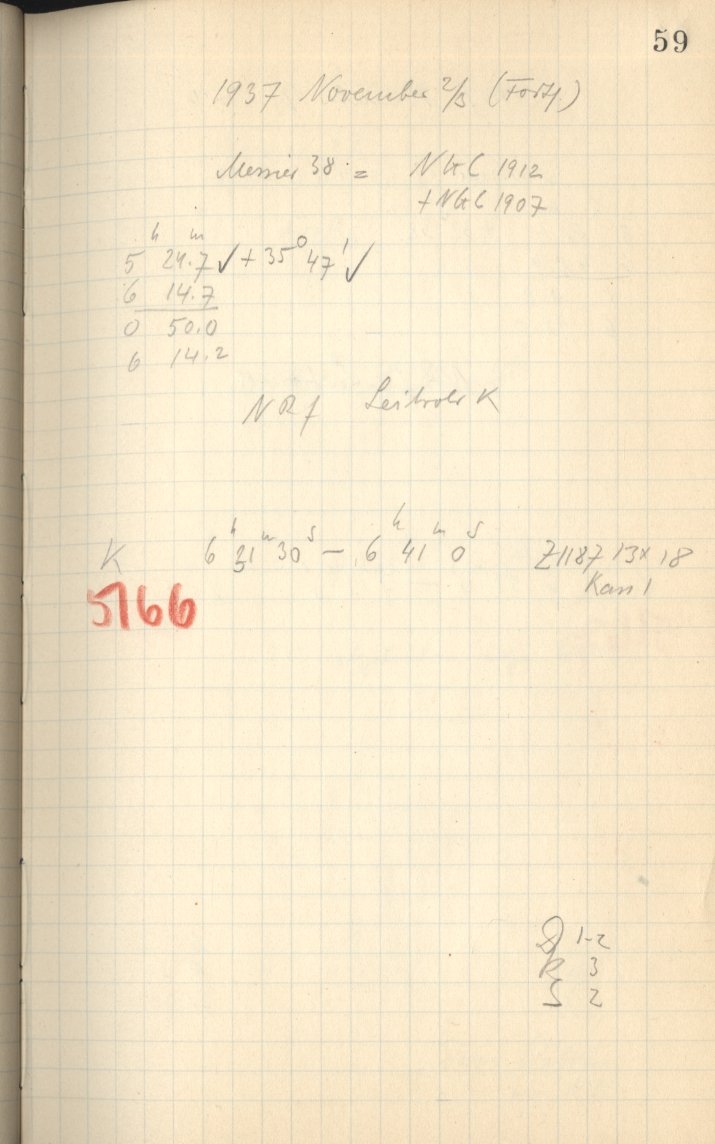 59
1937 November 2/3 (Forts.)
Messier 38 = NGC 1912
+ NGC 1907
5 h 24.7 m ✓ + 35° 47' ✓
6 14.7
0 50.0
6 14.2
NRf Leitrohr K
K 6 h 31 m 30 s — 6 h 41 m 0 s Z1187 13x18
Kass 1
5166
D 1-2
R 3
S 2